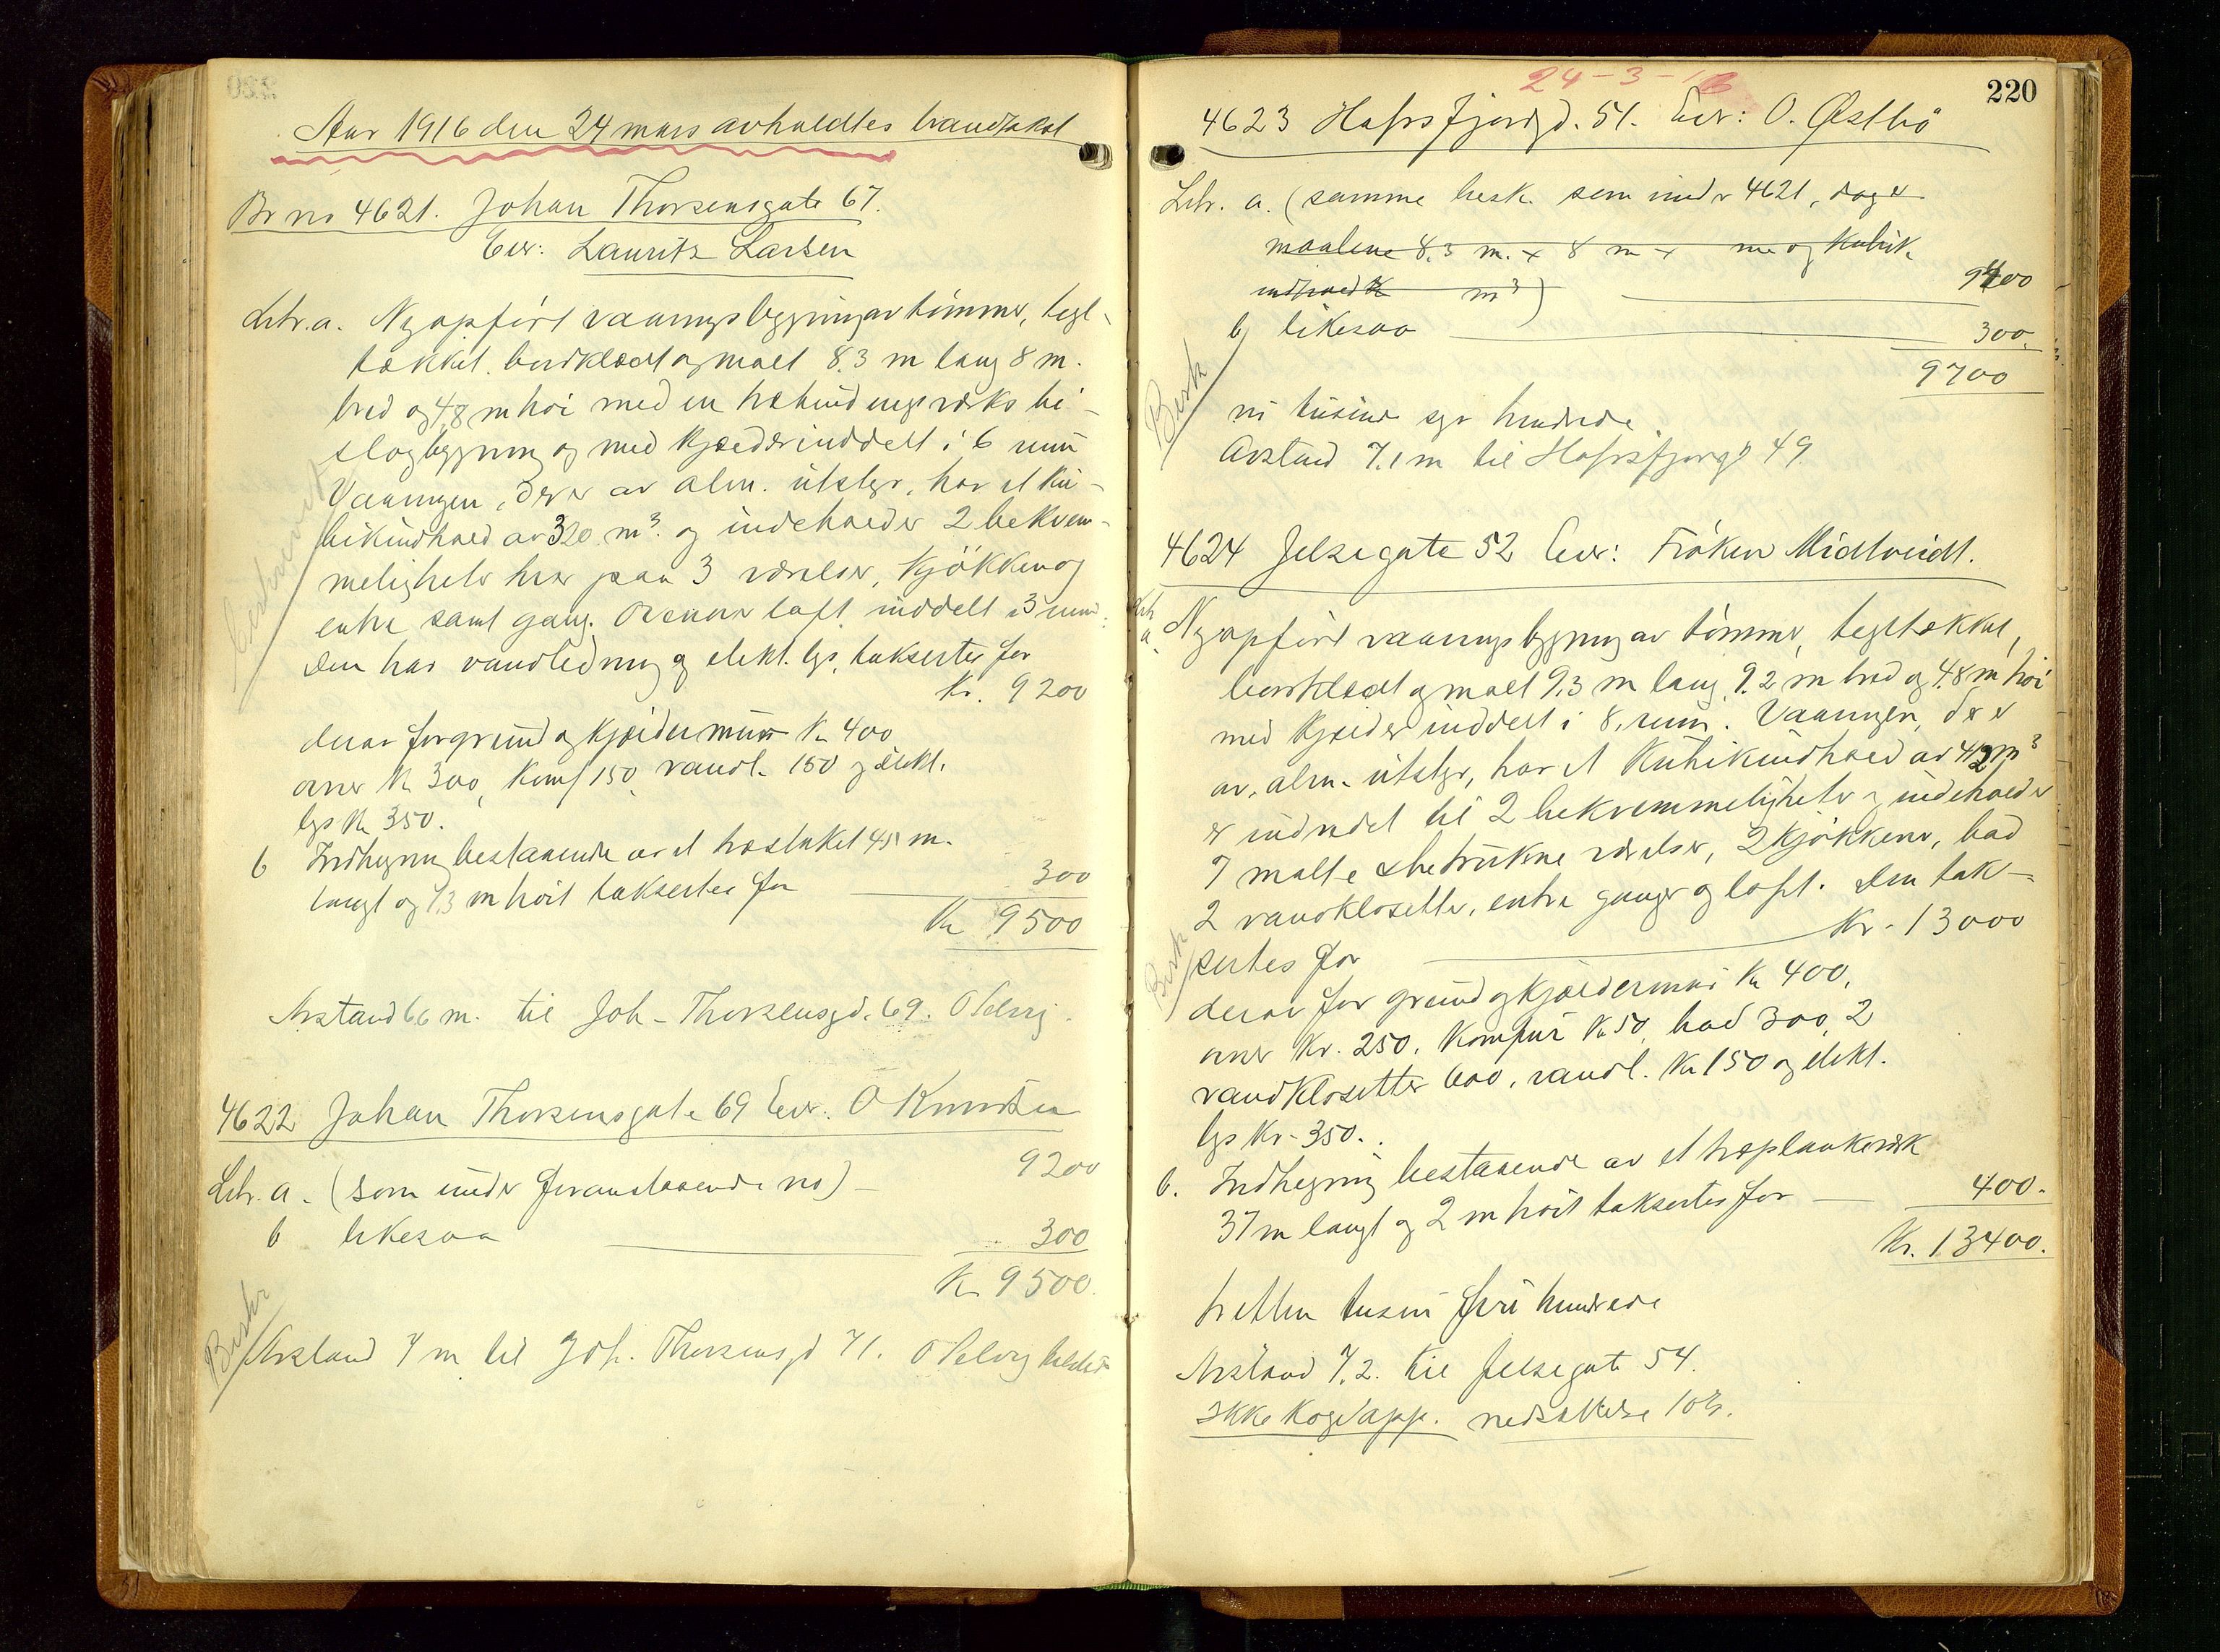 Aar 1916 den 24 mars avholdtes brandtakst
Br no 4621. Johan Thorsensgate 67.
Eier: Lauritz Larsen
Litr. a. Nyopført vaaningsbygning av tømmer, tegl-
tækket, bordklædt og malt 8.3 m lang 8 m.
bred og 4,8 m høi med en træbindingsverks bi-
slagbygning og med kjælder inddelt i 6 rum
Vaaningen, der er av alm. utstyr, har et ku-
bikindhold av 320 m³. og indeholder 2 bekvem-
meligheter hver paa 3 værelser, kjøkken og
entre samt gang. Ovenover loft inddelt i 3 rum.
Den har vandledning og elekt. lys, taksertes for
Kr. 9200
derav for grund og kjældermur Kr 400
ovner Kr 300, Komf 150, vandl. 150 og elekt.
lys Kr 350.
b Indhegning bestaaende av et træstaket 45 m.
langt og 1,3 m høit taksertes for 300
Kr 9500
Avstand 6.6 m. til Joh. Thorsensgd. 69. O Selvig.
4622 Johan Thorsensgate 69 Eier: O Knudsen
Litr. a. (som under foranstaaende no) - 9200
b likesaa 300
Kr 9500.
Beskr
Avstand 7 m til Joh. Thorsensgd 71. O Selvig
24-3-16
220
4623 Hafrsfjordgd. 51. Eier: O. Østbø
Litr. a. (samme besk. som under 4621, dog er
maalene 8.3 m. x 8 m x me og kubik
indhold m³) 9400
b likesaa 300.
9700
Besk
ni tusinde syv hundrede.
Avstand 7.1 m til Hafrsfjordgd 49
4624 Jelsegate 52 Eier: Frøken Midtveidt.
Litr a. Nyopført vaaningsbygning av tømmer, tegltækket,
bordklædt og malt 9.3 m lang 9.2 m bred og 4.8 m høi
med kjælder inddelt i 8 rum. Vaaningen, der er
av alm. utstyr, har et kubikindhold av 412 m³
er indredet til 2 bekvemmeligheter og indeholder
7 malte & betrukne værelser, 2 kjøkkener, bad
2 vandklosetter, entre ganger og loft. Den tak-
sertes for Kr. 13000
Besk
derav for grund og kjældermur Kr 400,
ovner Kr. 250. Komfur Kr 50, bad 300, 2
vandklosetter 600, vandl. Kr 150 og elekt.
lys Kr. 350.
b. Indhegning bestaaende av et træplankeverk
37 m langt og 2 m høit taksertes for 400.
Kr. 13400.
tretten tusin fire hundrede
Avstand 7.2. til Jelsegate 54.
Ikke Koge app. nedsættelse 10%.